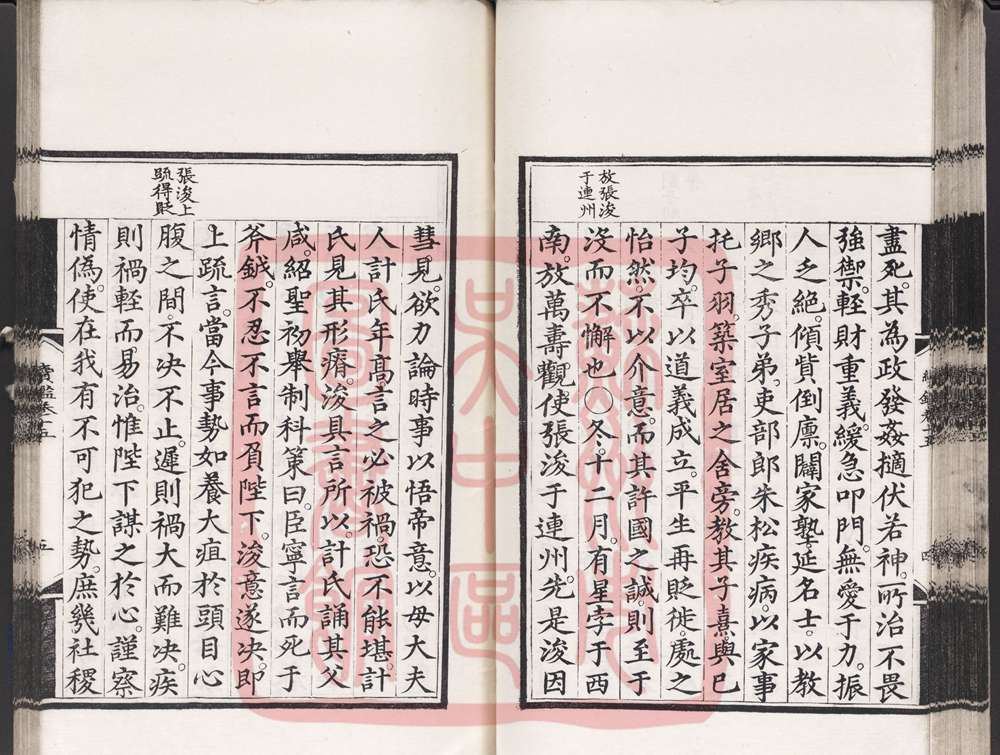 放張浚
于連州
盡死。其為政發姦擿伏若神。所治不畏
強禦。輕財重義。緩急叩門。無愛于力。振
人乏絶。傾貲倒廪。闢家塾。延名士。以教
鄉之秀子弟。吏部郎朱松疾病。以家事
托子羽。築室居之舍旁。教其子熹與巳
子均。卒以道義成立。平生再貶徙。處之
怡然。不以介意。而其許國之誠。則至于
没而不懈也○冬。十二月。有星孛于西
南。放萬壽觀使張浚于連州。先是浚因
張浚上
䟽得貶
彗見。欲力論時事以悟帝意。以母大夫
人計氏年髙。言之必被禍。恐不能堪。計
氏見其形瘠。浚具言所以。計氏誦其父
咸。紹聖初舉制科策曰。臣寧言而死于
斧鉞。不忍不言而負陛下。浚意遂决。即
上䟽言。當今事勢如養大疽於頭目心
腹之間。不决不止。遲則禍大而難决。疾
則禍輕而易治。惟陛下謀之於心。謹察
情僞。使在我有不可犯之勢。庶幾社稷
五
四